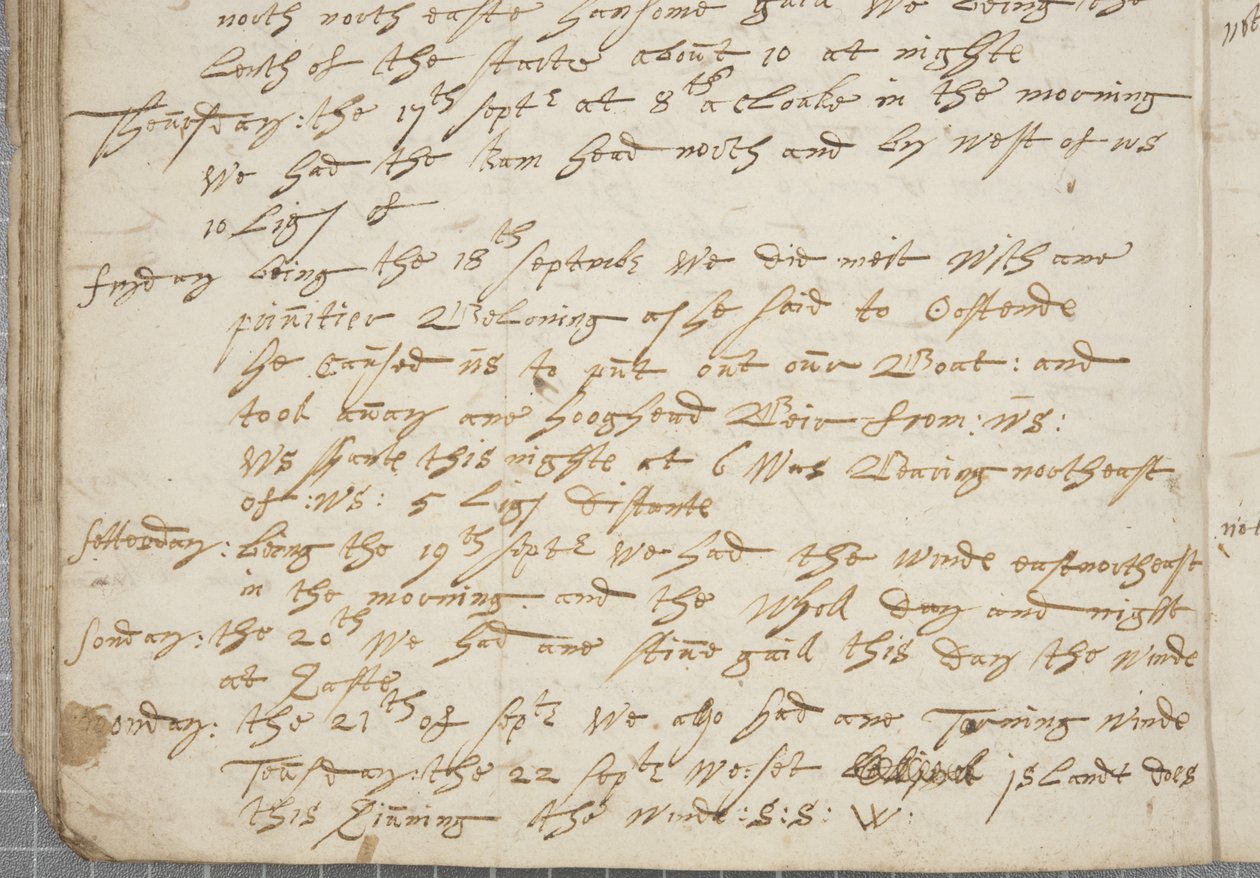 north north easte hansome gaill We being the
lenth of the starte about 10 at nighte
Theursday: the 17th septr at 8th a cloake in the morning
We had the Ram head north and by west of ws
10 Ligs of
fryday being the 18th septmbr We did meit With ane
privitier Beloning as he said to Oostende
he Caused us to put out our Boat: and
took away ane hooghead Beir from: us:
this nighte at 6 Was Bearing northeast
of: ws: 5 Ligs distante
setterday: being the 19th septr We had the winde eastnortheast
in the morning and the Wholl day and night
sonday: the 20th We had ane stiue gaill this day the winde
at Easte
moonday: the 21th of septr We also had ane Torning winde
Teusday: the 22 septr We: set islandt does
this Eiuning the winde: S: S: W:
not